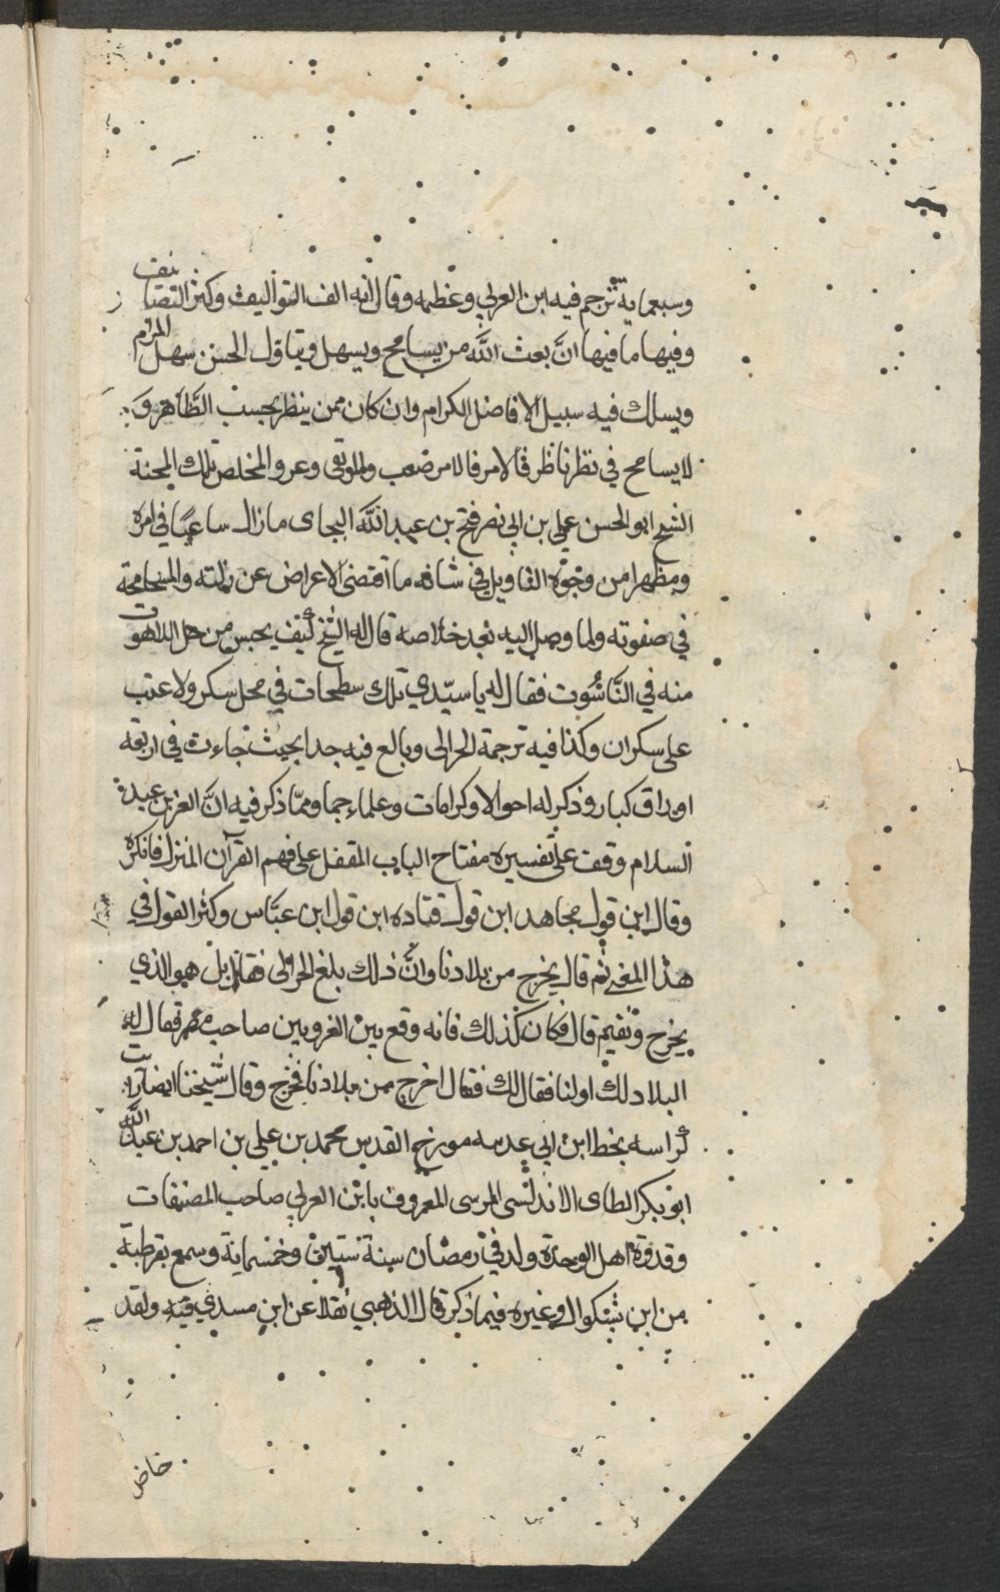 وسبعماية ترجم فيه ابن العربي وعظمه وقال انه الف التواليف وكنز التصانيف
وفيها ما فيها انَّ بعث الله من يسامح ويسهل ويتاول الحسن سهل المرام
ويسلك فيه سبيل الافاضل الكرام وان كان ممن ينظر بحسب الظَّاهر و
لا يسامح في نظر ناظر فالامر فالامر صعب والمرتقى وعر والمخلص تلك المحنة
الشيخ ابو الحسن علي بن ابي نصر فتح بن عبد الله البجاى مازال ساعيًا في امره
ومظهرا من وجوْه التاويل في شانه ما اقتضى الاعراض عن زلته والمسامحة
في صفوته ولما وصل اليه بعد خلاصه قال له الشيخ كيف يحبس من حل اللاهوت
منه في النَّاسُوت فقال له يا سيّدي تلك سطحات في محل سكر ولا عتب
على سكران وكذا فيه ترجمة الحرالى وبالع فيه جدا بحيث جاءت في اربعة
اوراق كبار وذكر له احوالا وكرامات وعلماء جما وممّا ذكر فيه انَّ العز بن عبد
السلام وقف على تفسيره مفتاح الباب المقفل على فهم القرآن المنزل فانكره
وقال اين قول مجاهد اين قول قتاده اين قول ابن عبَّاس وكثر القول في
هذا المعنى ثم قال يخرج من بلادنا وانَّ ذلك بلغ الحرالى فقال بل هو الذي
يخرج ونقيم قال فكان كذلك فانه وقع بين الغزوبين صاحب مصر فقال له
البلاد لك اولنا فقال لك فقال اخرج من بلادنا فخرج وقال شيخنا ايضا رايت
كراسه بخط ابن ابي عدسه مورخ القدس محمد بن علي بن احمد بن عبد الله
ابو بكر الطاى الاندلسى المرسى المعروف بابن العربي صاحب المصنفات
وقدوة اهل الوحدة ولد في رمضان سنة ستين وخمسماية وسمع بقرطبة
من ابن بشكوال وغيره فيما ذكر قال الذهبي نقلا عن ابن مسدي فيه ولقد
خاض